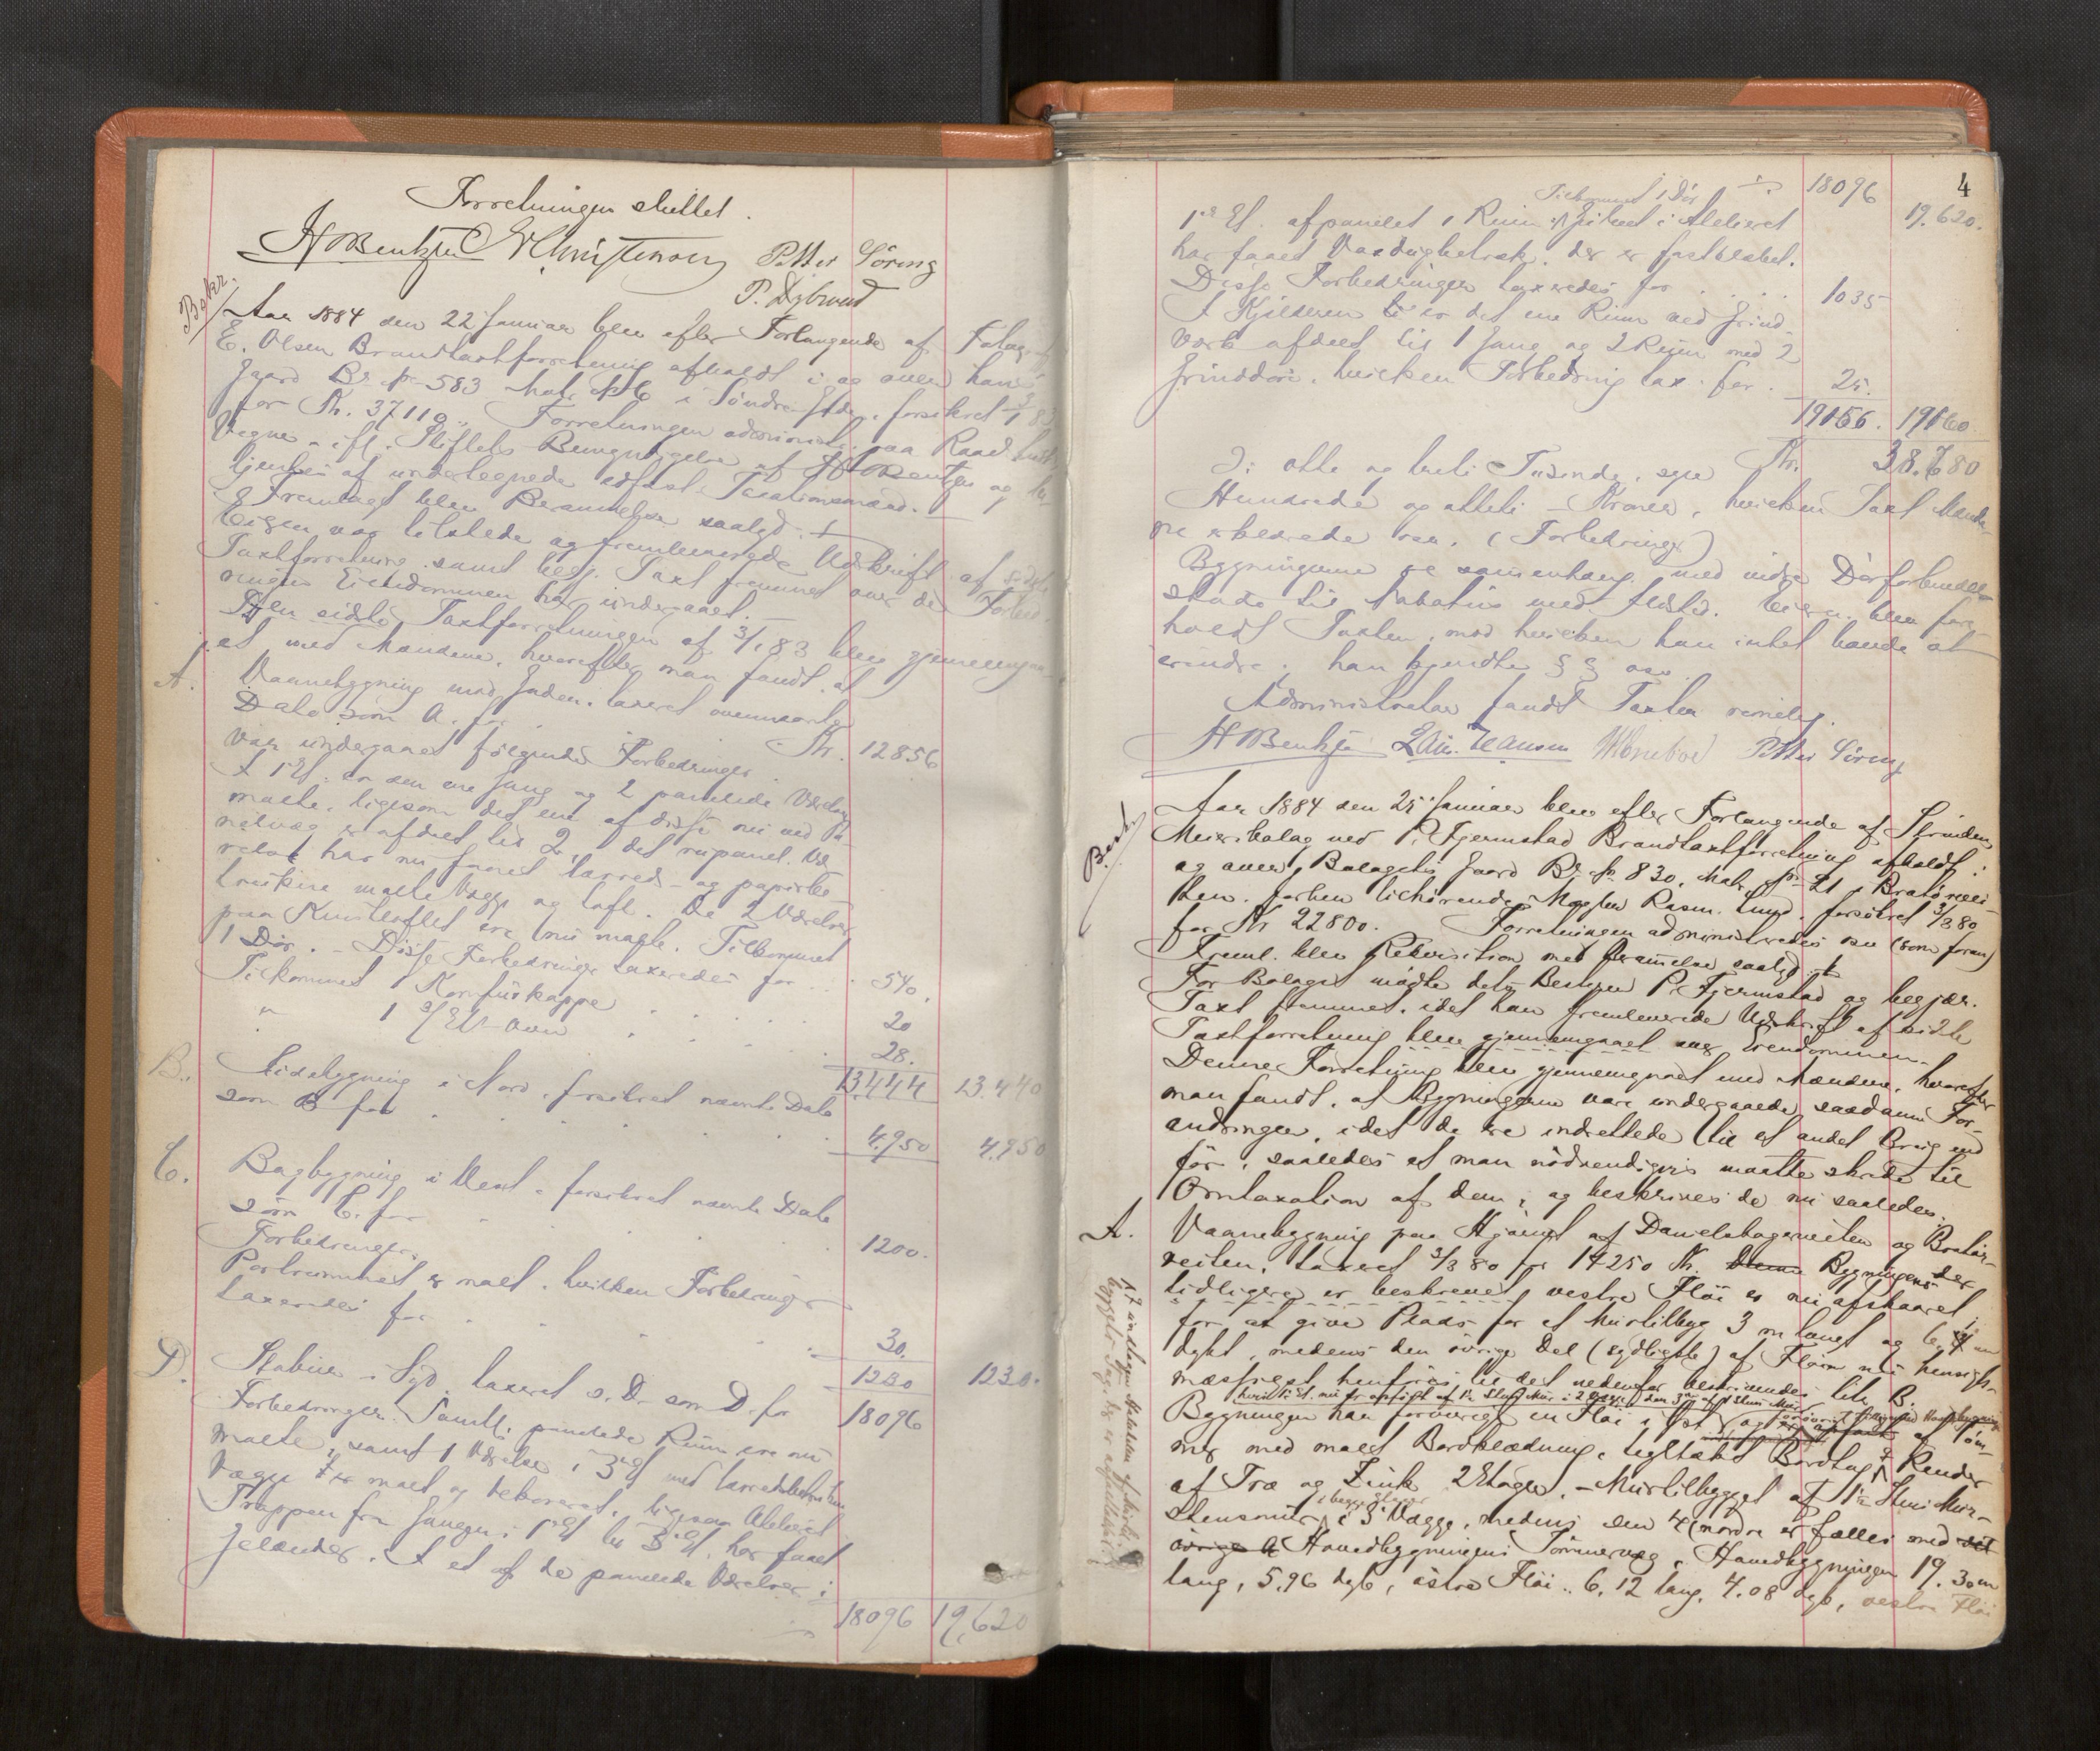 Forretningen sluttet.
HBentzen E Christensen Petter Söring
P. Dybvad
Bekr.
Aar 1884 den 22 Januar blev efter Forlangende af Fotograf
E. Olsen Brandtaxtforretning afholdt i og over hans
Gaard Br. No 583 Matr. No 6 i Söndre Gde., forsikret 3/1 83
for Kr. 37110,, Forretningen administr. paa Raadstuens
Vegne – ifl. Stiftets Bemyndigelse af HBentzen og be-
tjentes af undertegnede edfæst. Taxationsmænd.
Fremlagt blev Berammelse saalyd. +
Eieren var tilstede og fremleverede Udskrift af sidste
Taxtforretning samt begj. Taxt fremmet over de Forbed-
ringer Eiendommen har undergaaet.
Den sidste Taxtforretningen af 3/1 83 blev gjennemgaa-
et med Mændene, hvorefter man fandt, at
A. Vaanebygning mod Gaden, taxeret ovennævnte
Dato som A. for . . Kr. 12856
var undergaaet følgende Forbedringer.
I 1 Et. er den ene Gang og 2 panelede Værelser
malte, ligesom det ene af disse nu ved Pa-
nelvæg er afdelt til 2, det upanel. Væ-
relse har nu faaet lærred- og papirbe-
trukne malte Vægge og Loft. De 2 Værelser
paa Kvistloftet ere nu malte. Tilkommet
1 Dör. – Disse Forbedringer taxeredes for . . 540.
Tilkommet 1 Komfurkappe . . . . 20
" 1 3/Et Ovn . . . . 28.
13.444 13.440
B. Sidebygning i Nord, forsikret nævnte Dato
som B for . . . . 4.950 4.950
C. Bagbygning i Vest – forsikret nævnte Dato
som C. for . . . . 1200.
Forbedringer.
Portrummet er malt, hvilken Forbedring
taxeredes for . . . . 30.
1230 1230.
D. Stabur i Syd, taxeret s. D. som D. for 18096
Forbedringer. Samtl. panelede Rum ere nu
malte, samt 1 Værelse i 3 Et med lærredsbetrukne
Vægge er malt og dekoreret, ligesom Atelieret
Trappen fra Gangen i 1 Et til 3 Et. har faaet
Gelænder. I et af de panelede Værelser i
18096 19,620
4
18096 19.620.
Tilkommet 1 Dör
1 Et. afpanelet 1 Rum. Gulvet i Atelieret
har faaet Voxdugbetræk, der er fastklæbet.
Disse Forbedringer taxeredes for . . . . 1035
I Kjelderen er det ene Rum ved Grind-
værk afdelt til 1 Gang og 2 Rum med 2
Grinddöre, hvilken Forbedring tax. for . 25.
19156. 19160
Kr. 38.780
D: otte og treti Tusinde, syv
Hundrede og otteti – Kroner, hvilken Taxt Mænde-
ne erklærede osv. (Forbedringer)
Bygningerne ere sammenhæng. med indre Dörforbindelse
Eieren blev fore-
holdt Taxten, mod hvilken han intet havde at
erindre; han kjendte § § osv.
Administrator fandt Taxten rimelig.
HBentzen Petter Söring
Besk.
Aar 1884 den 25 Januar blev efter Forlangende af Strinden
Meieribolag ved P. Fjermstad Brandtaxtforretning afholdt i
og over Bolagets Gaard Br. No 830, Matr. No 21 i Bratörvei-
ten, forhen tilhörende Mægler Rasm. Lund, forsikret 3/3 80
for Kr 22800. Forretningen administreredes osv (som foran)
Freml. blev Rekvisition med Berammelse saalyd. +
For Bolaget mödte dets Bestyrer P. Fjermstad og begjær.
Taxt fremmet, idet han fremleverede Udskrift af sidste
Taxtforretning blev gjennemgaaet over Eiendommen.
Denne Forretning blev gjennemgaaet med Mændene, hvorefter
man fandt, at Bygningerne vare undergaaede saadanne For-
andringer, idet de ere indrettede til et andet Brug end
för, saaledes at man nödvendigvis maatte skride til
Omtaxation af dem, og beskrives de nu saaledes:
A. Vaanebygning paa Hjörnet af Danielsbagerveiten og Bratör-
veiten, taxeret 3/3 80 for 14250 Kr. Denne Bygningens der
tidligere er beskrevet vestre Flöi er nu afskaaret,
for at give Plads for et Murtilbyg 3 m langt og 6,4 m
dybt, medens den övrige Del (sydligste) af Flöien nu hensigts-
mæssigst henföres til det nedenfor beskrivendes litr. B.
Bygningen har forövrigt en Flöi i Öst og er opfört af Töm-
mer med malet Bordklædning, teglhakt Bordtag, Render
af Træ og Zink, 2 Etager. – Murtilbygget af 1½ Stens Mur-
Stensmur i begge Etager i 3 Vægge, medens den 4 (nordre) er fælles med det
övrige A Hovedbygningens Tömmervæg. Hovedbygningen 19.30 m
lang, 5.96 dyb, östre Flöi . 6.12 lang, 4.08 dyb, vestre Flöi